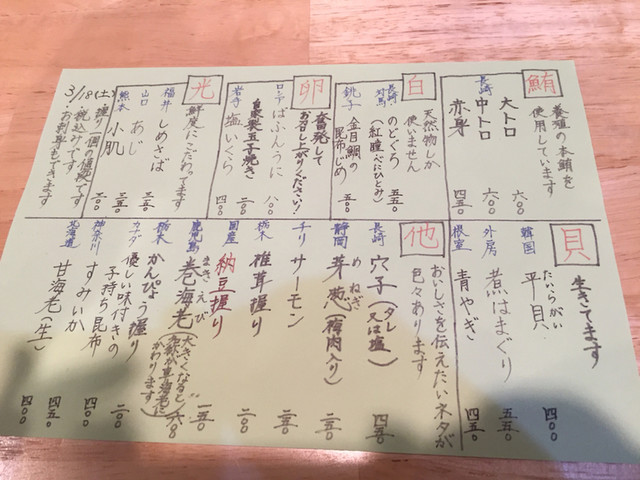 鮪
養殖の本鮪を
使用しています
大トロ 六〇〇
長崎 中トロ 六〇〇
赤身 四五〇
白
天然物しか
使いません
長崎 対馬 のどぐろ 五五〇
(紅瞳 べにひとみ)
銚子 金目鯛の
昆布じめ 五〇〇
卵
奮発して
お召し上がりください!
ロシア ばふんうに 八〇〇
自家製玉子焼き
岩手 塩いくら 四〇〇
光
鮮度にこだわってます
福井 しめさば 三五〇
山口 あじ 三五〇
熊本 小肌 三〇〇
3/18(土)握り一個の値段です
税込みです
お刺身もできます
貝
生きてます
韓国 平貝 たいらがい 四〇〇
外房 煮はまぐり 五五〇
根室 青やぎ 四五〇
他
おいしさを伝えたいネタが
色々あります
長崎 穴子(タレ又は塩) 四五〇
静岡 芽葱 めねぎ (梅肉入り) 三五〇
チリ サーモン 三五〇
栃木 椎茸握り 二〇〇
国産 納豆握り 二〇〇
鹿児島 巻海老 まきえび 一五〇
(大きくなると
車海老に
かわります)
栃木 かんぴょう握り
カナダ 優しい味付きの
子持ち昆布
神奈川 すみいか 四〇〇
北海道 甘海老(生) 四五〇
四〇〇